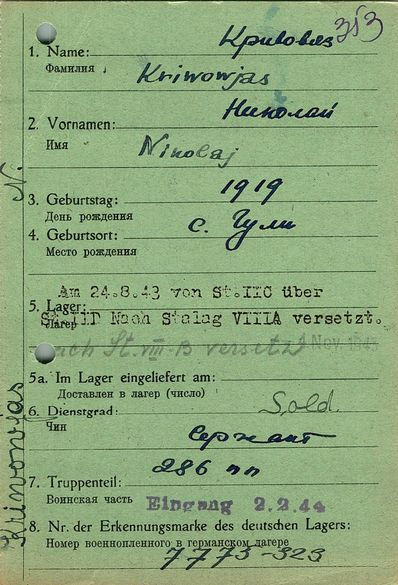 353
Кривовяз
1. Name:
Фамилия
Kriwowjas
Николай
2. Vornamen:
Имя
Nikolaj
N.
3. Geburtstag: 1919
День рождения
4. Geburtsort: с. Гули
Место рождения
Am 24.8.43 von St.IIC über
5. Lager:
Лагерь
St.IIT Nach Stalag VIIIA versetzt.
nach St. VIII-B versetzt Nov.
5a. Im Lager eingeliefert am:
Доставлен в лагер (число)
6. Dienstgrad: Sold.
Чин
Сержант
286 пп
7. Truppenteil:
Воинская часть
Eingang 2.2.44
8. Nr. der Erkennungsmarke des deutschen Lagers:
Номер военнопленного в германском лагере
7773-323
Kriwowjas